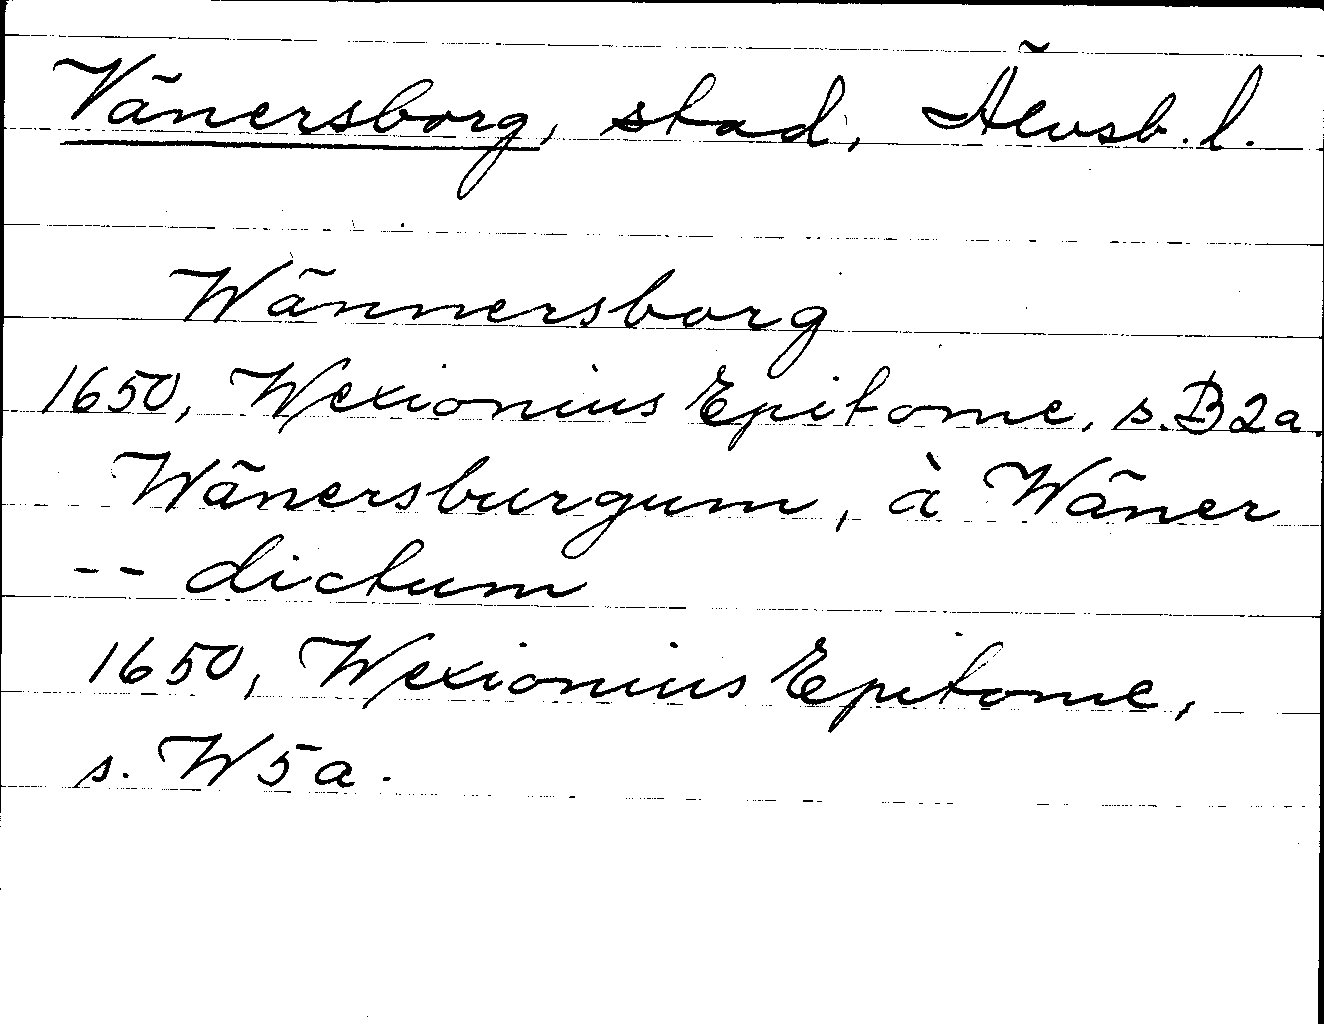 Vänersborg, stad, Älvsb. l.
Wännersborg
1650, Wexionius Epitome, s. B2a.
Wänersburgum, à Wäner
-- dictum
1650, Wexionius Epitome,
s. W5a.